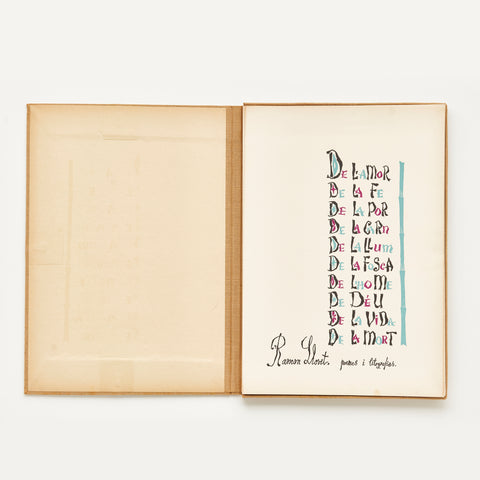 De LAMOR
De LA Fe
De LA POR
De LA CARN
De LA LLUM
De LA FOSCA
De LHOMe
De DÉU
De LA VIDA
De LA MORT
Ramon Lloret. poemes i litografies.